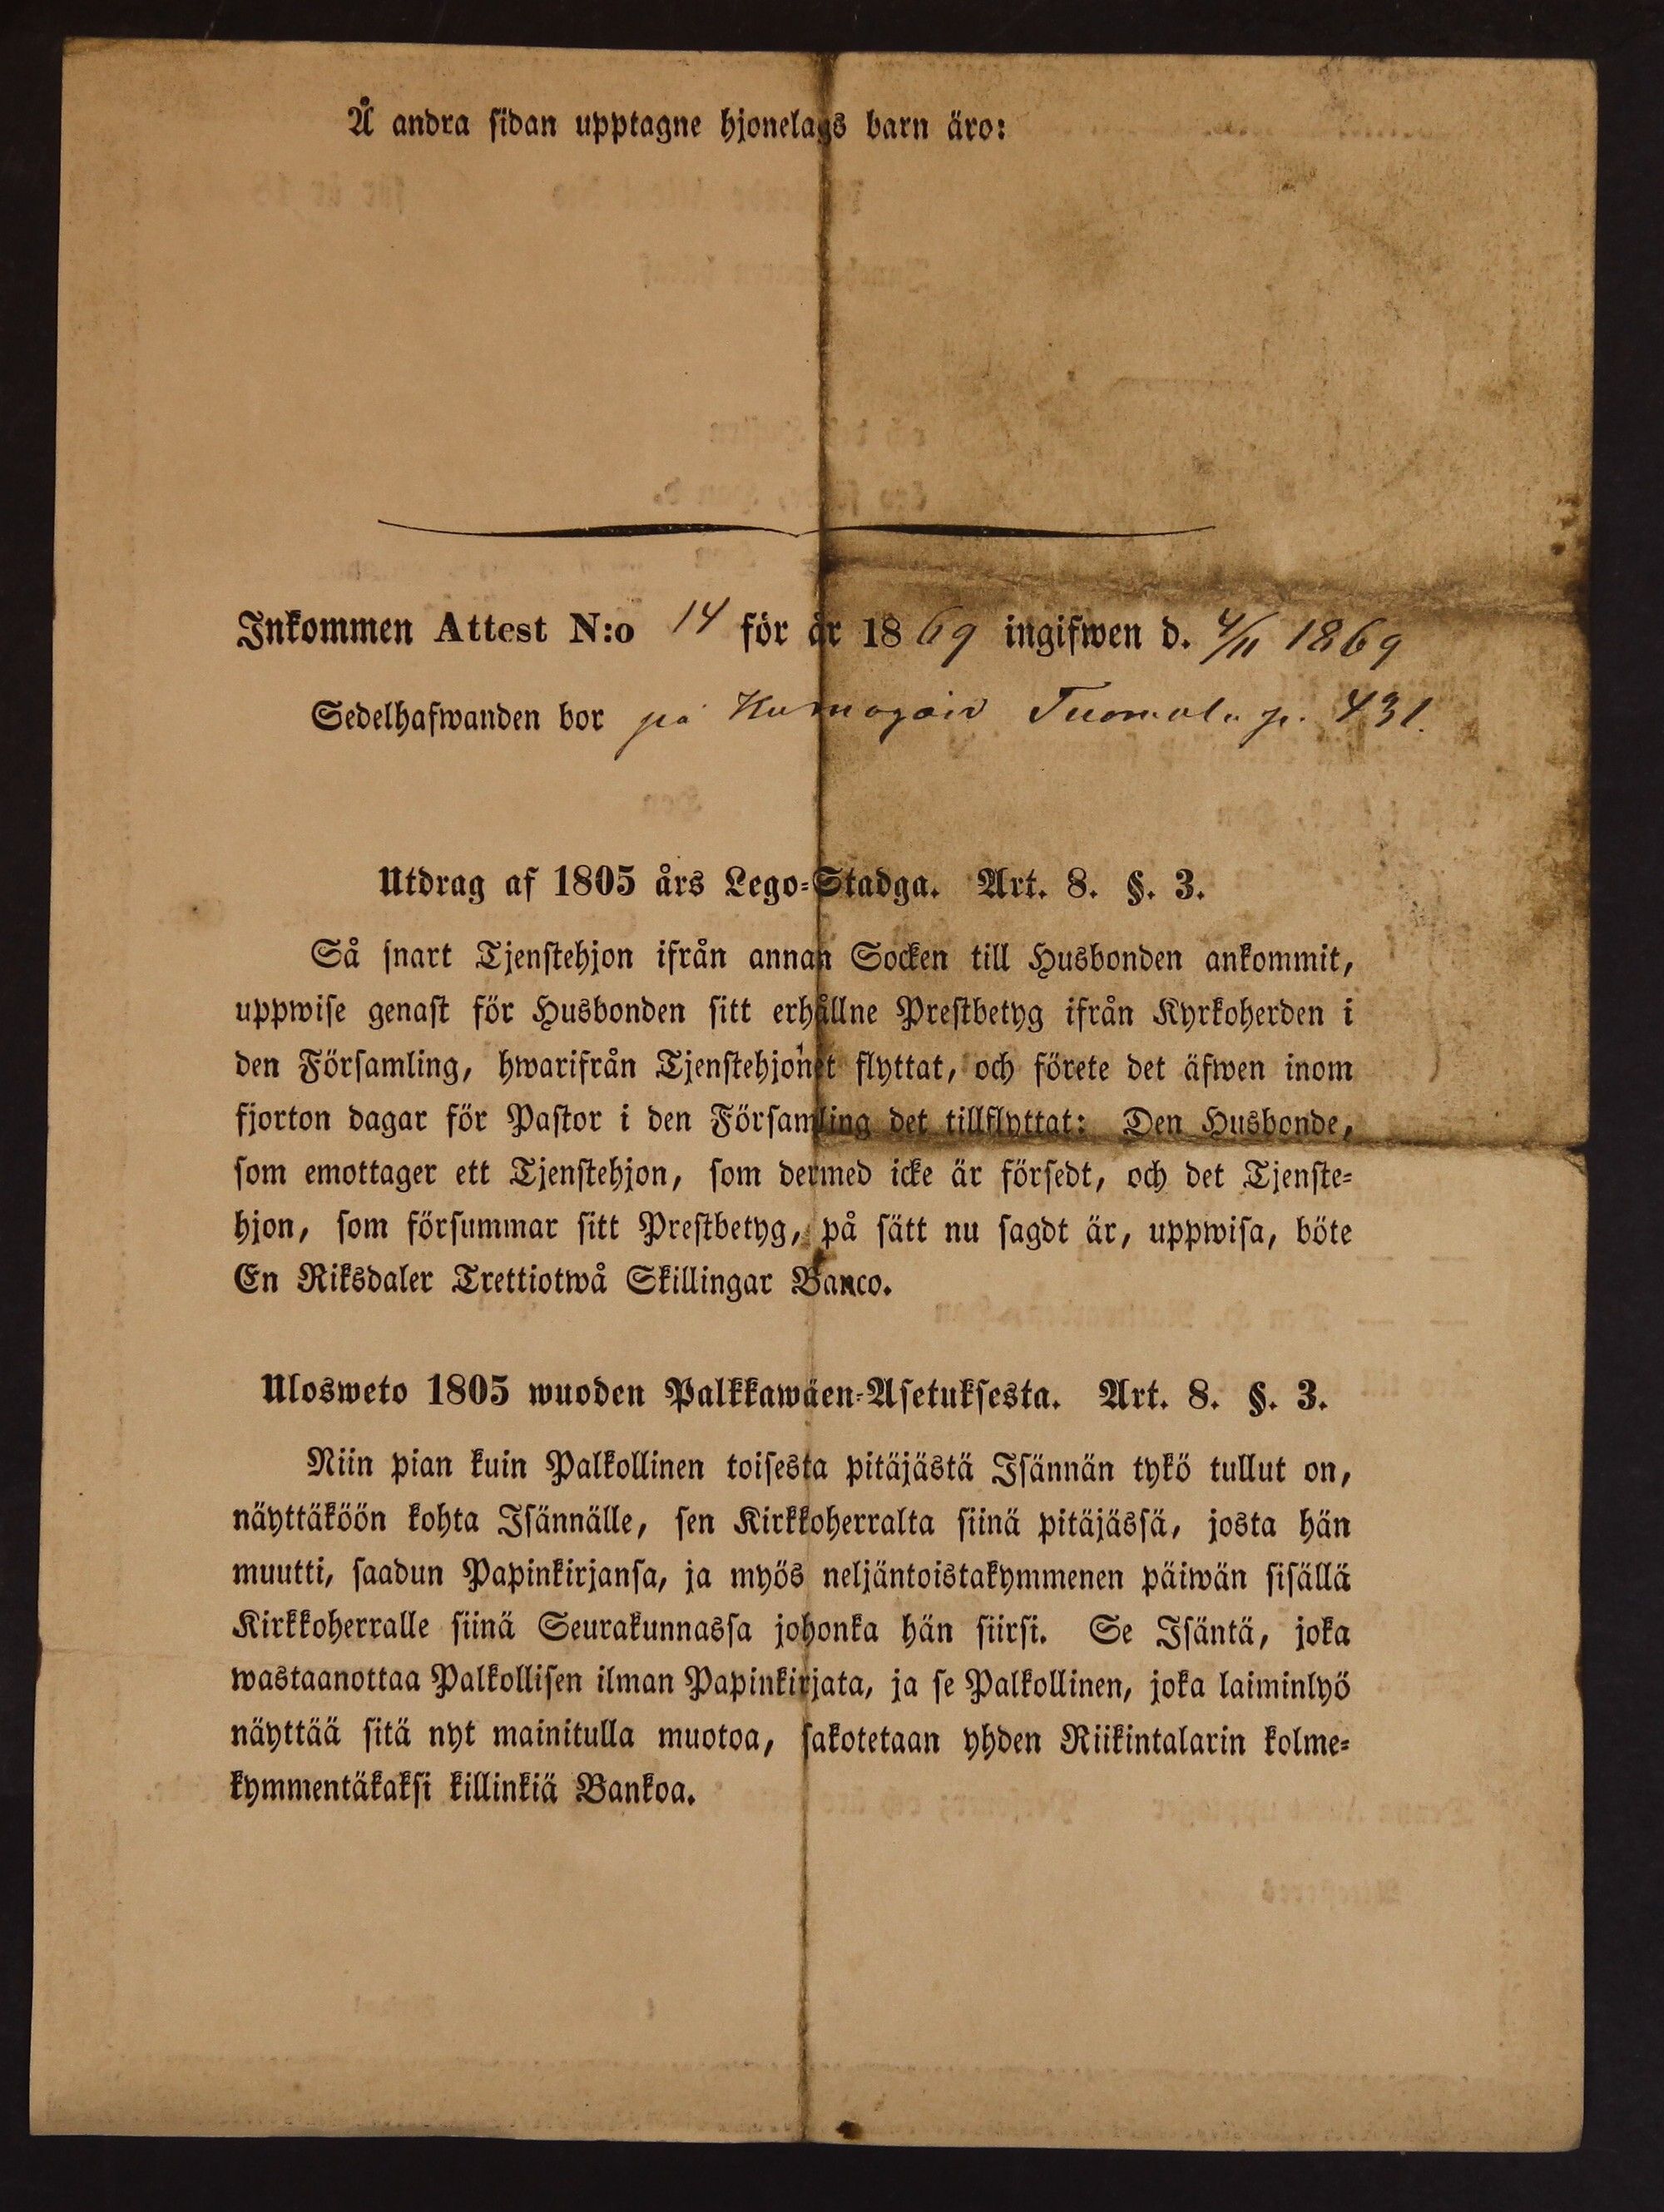 Å andra sidan upptagne hjonelags barn äro:
Inkommen Attest N:o 14 för år 1869 ingifwen d. 4/11 1869
Sedelhafwanden bor på Tuomola p. 431.
Utdrag af 1805 års Lego-Stadga. Art. 8. §. 3.
Så snart Tjenstehjon ifrån annan Socken till Husbonden ankommit,
uppwise genast för Husbonden sitt erhållne Prestbetyg ifrån Kyrkoherden i
den Församling, hwarifrån Tjenstehjonet flyttat, och förete det äfwen inom
fjorton dagar för Pastor i den Församling det tillflyttat: Den Husbonde,
som emottager ett Tjenstehjon, som dermed icke är försedt, och det Tjenste-
hjon, som försummar sitt Prestbetyg, på sätt nu sagdt är, uppwisa, böte
En Riksdaler Trettiotwå Skillingar Banco.
Ulosweto 1805 wuoden Palkkawäen-Asetuksesta. Art. 8. §. 3.
Niin pian kuin Palkollinen toisesta pitäjästä Isännän tykö tullut on,
näyttäköön kohta Isännälle, sen Kirkkoherralta siinä pitäjässä, josta hän
muutti, saadun Papinkirjansa, ja myös neljäntoistakymmenen päiwän sisällä
Kirkkoherralle siinä Seurakunnassa johonka hän siirsi. Se Isäntä, joka
wastaanottaa Palkollisen ilman Papinkirjata, ja se Palkollinen, joka laiminlyö
näyttää sitä nyt mainitulla muotoa, sakotetaan yhden Riikintalarin kolme-
kymmentäkaksi killinkiä Bankoa.